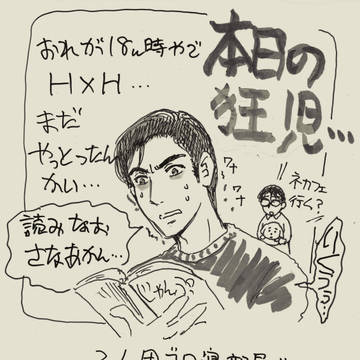 本日の
狂児…
おれが18ん時やで
H×H…
まだ
やっとったん
かい…
読みなお
さなあかん…
ワナ
ワナ
ネカフェ
行く?
じゃんぷ